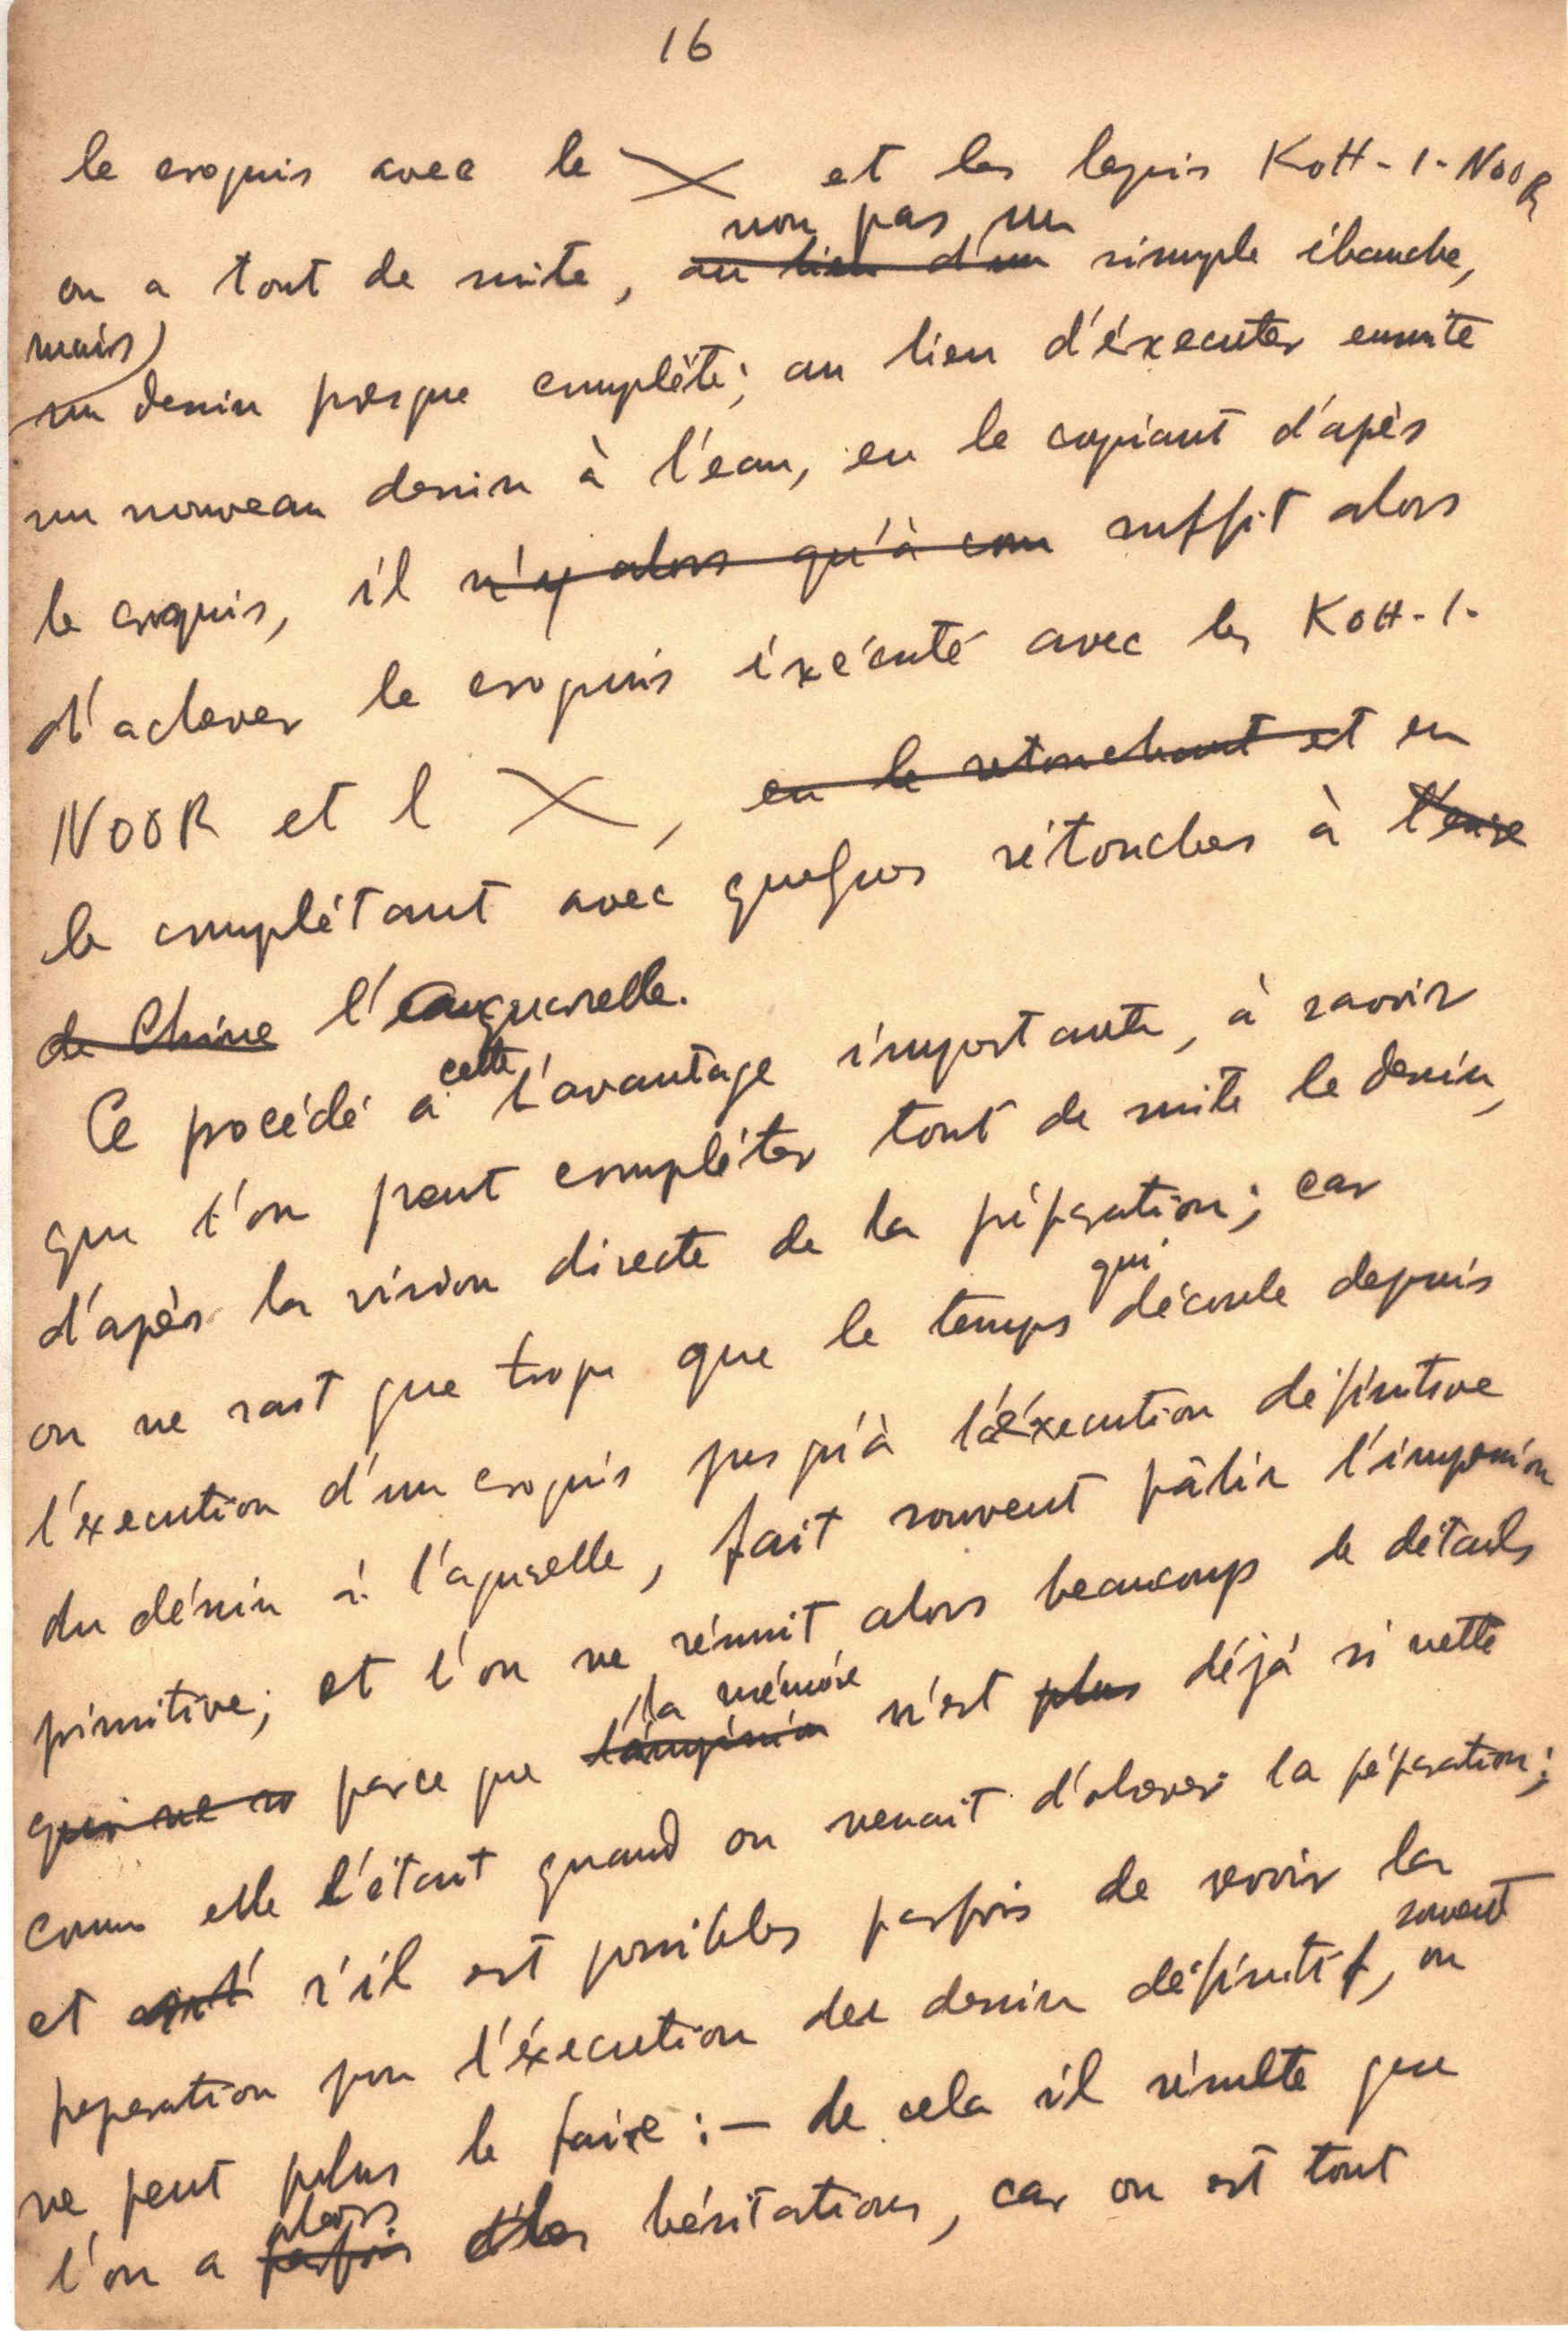 16
le croquis avec le X et les lapis KOH-I-NOOR
on a tout de suite, au lieu d'un non pas un simple ébauche,
mais
un dessin presque complète; au lieu d'éxecuter ensuite
un nouveau dessin à l'eau, en le copiant d'après
le croquis, il n'y alors qu'à com suffit alors
d'achever le croquis éxécuté avec les KOH-I-
NOOR et l X, en le retouchant et en
le complétant avec quelques rétouches à l'encre
de Chine l'auquarelle.
Ce procédé a cette l'avantage importante, à savoir
que l'on peut compléter tout de suite le dessin,
d'après la vision directe de la préparation; car
on ne sait que trop que le temps qui découle depuis
l'éxecution d'un croquis jusqu'à l'éxecution définitive
du déssin à l'aquarelle, fait souvent pâlir l'impression
primitive; et l'on ne réunit alors beaucoup de détails
qui ne parce que la mémoire n'est plus déjà si nette
comm elle l'étant quand on venait d'observer la préparation;
et s'il est possibles parfois de revoir la
preparation pou l'éxecution del dessin définitif, souvent on
ne peut plus le faire :— de cela il résulte que
l'on a parfois alors des hésitations, car on est tout